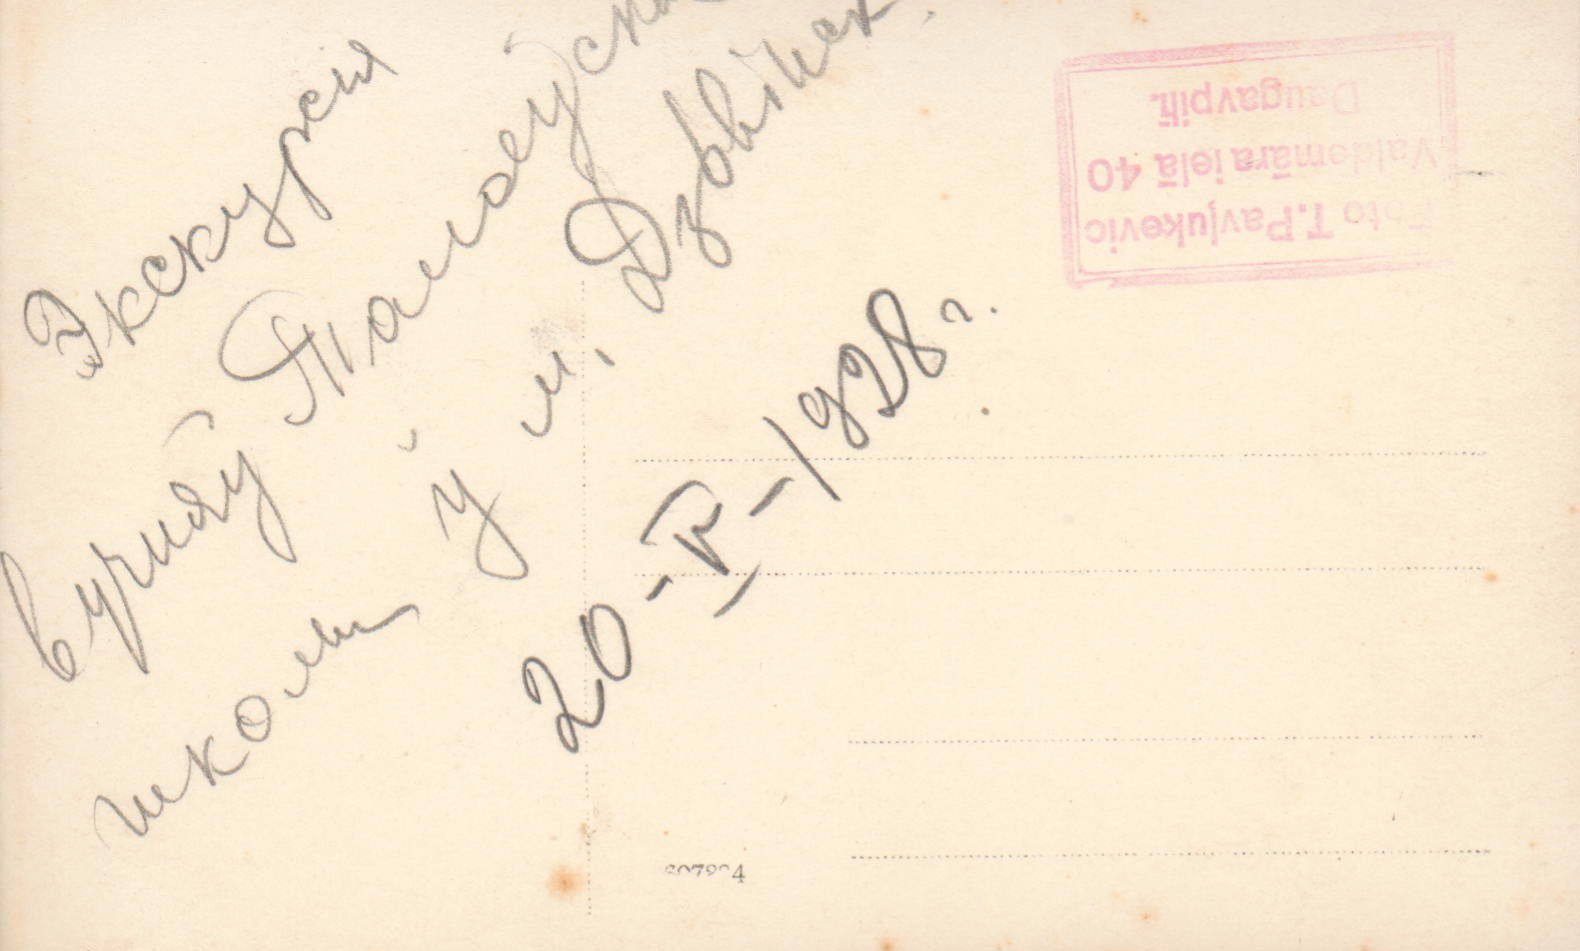 Экскурсія
вучняў
школы ў м. Дзьвінск.
20-V-1928 г.
Foto T. Pavļukevic
Valdemāra ielā 40
Daugavpilī.